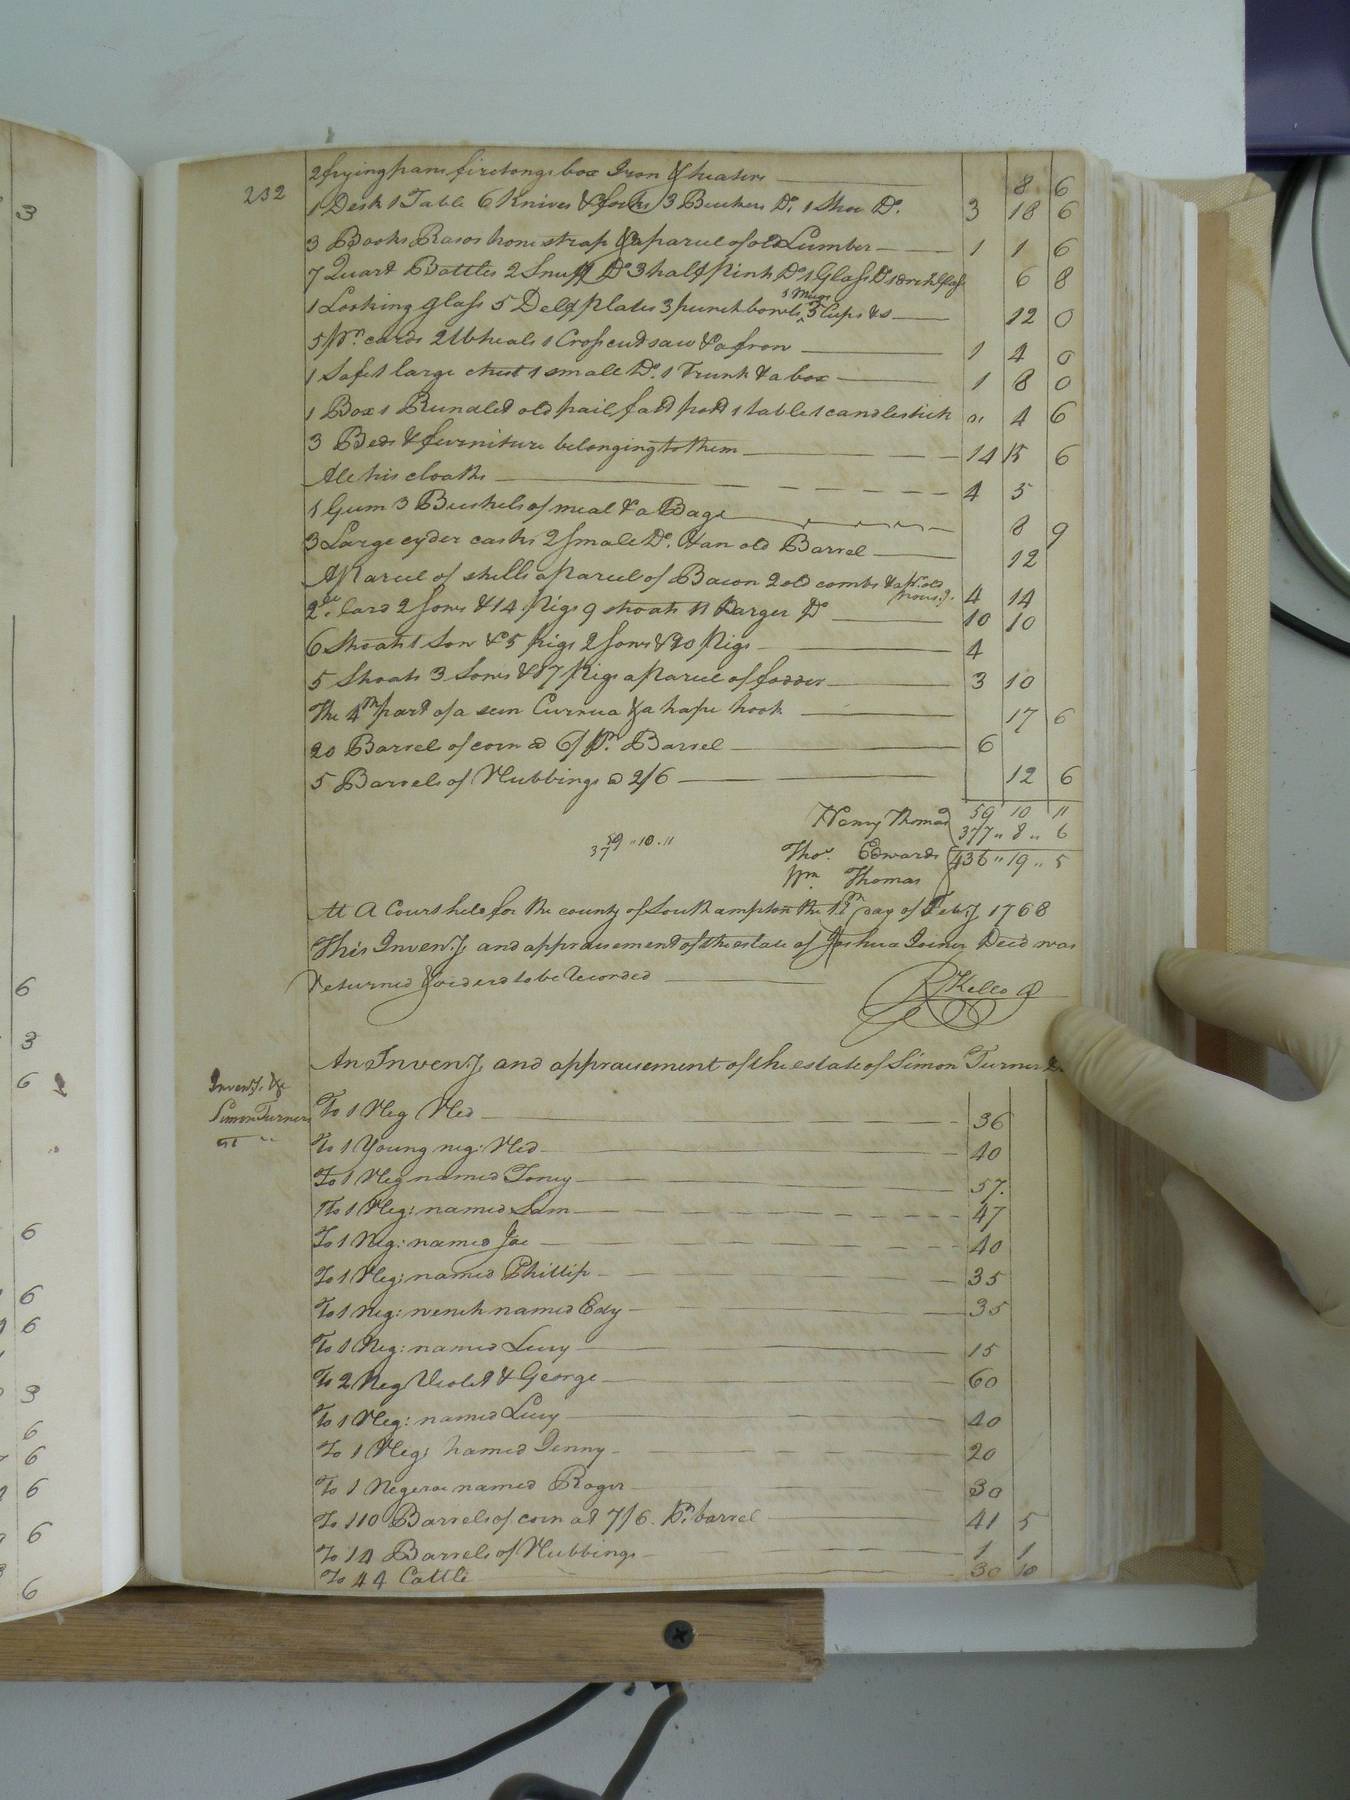 232
2 frying pans fire tongs box Iron & heaters 8 6
1 Desk 1 Table 6 Knives & forks 3 Buckers Do. 1 Shoe Do. 3 18 6
3 Books Rasor hone strap & a parcel of old Lumber 1 1 6
7 Quart Bottles 2 Snuff Do 3 half pink Do 1 Glass Do 6 8
1 Looking glass 5 Delf plates 3 punch bowls, 3 Mugs 5 Cups &s 12 0
5 pr. cards 2 Wheals 1 Cross cut saw & a fron 1 4 0
1 Safe 1 large chest 1 small Do. 1 Trunk & a box 1 8 0
1 Box 1 Rundlet old pail fatt pott 1 table 1 candlestick " 4 6
3 Beds & furniture belonging to them 14 15 6
All his cloaths 4 5
1 Gum 3 Bushels of meal & a Bage 8 9
3 Large cyder casks 2 small Do. & an old Barrel 12
A Parcel of skills a Parcel of Bacon 2 old combs & a pr. old 4 14
2d. Card 2 Sows & 14 Pigs 9 shoats 11 Larger Do 10 10
6 Shoats 1 Sow & 5 Pigs 2 Sows & 20 Pigs 4
5 Shoats 3 Sows & 17 Pigs a Parcel of fodder 3 10
The 4th part of a seen Currua & a hape hook 17 6
20 Barrel of corn @ 6/ Pr. Barrel 6
5 Barrels of Nubbings @ 2/6 12 6
Henry Thomas 59 10 11
377 " 8 " 6
59 " 10 " 11
37
Thos. Edwards 436 " 19 " 5
Wm Thomas
At A Court held for the county of Southampton the 11th day of Feby. 1768
This Inventy. and appraisement of the estate of Joshua Joiner Decd was
returned & orderd to be recorded
R Kello
An Inventy. and appraisement of the estate of Simon Turner
Inventy. &c
Simon Turners
To 1 Neg Ned 36
To 1 Young neg: Ned 40
To 1 Neg named Toney 57.
To 1 Neg: named Sam 47
To 1 Neg: named Joe 40
To 1 Neg: named Phillip 35
To 1 Neg: wench named Esey 35
To 1 Neg: named Lucy 15
To 2 Neg Violet & George 60
To 1 Neg: named Lucy 40
To 1 Neg: named Jenny 20
To 1 Negeroe named Roger 30
To 110 Barrels of corn at 7/6. Pr. barrel 41 5
To 14 Barrels of Nubbings 1 1
To 44 Cattle 30 10
3
6
3
6
6
6
6
3
6
6
6
6
6